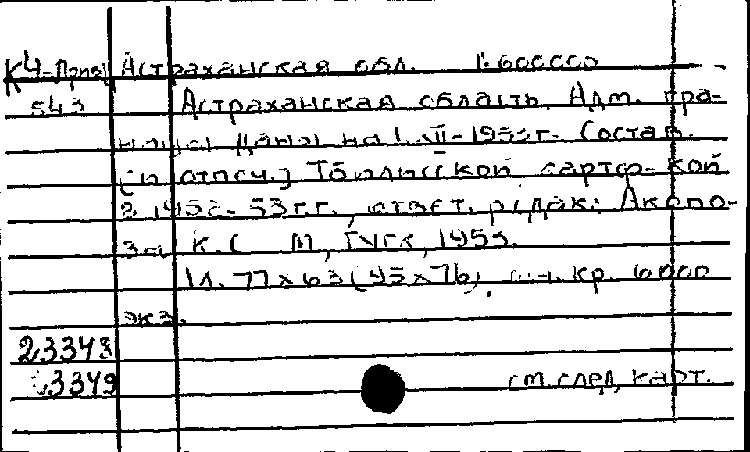 К4-Прик Астраханская обл. 1:600000
543 Астраханская область. Адм. гра-
ницы даны на 1.VII-1953г. Состав.
[и отпеч.] Тбилисской картф-кой
в 1952-53 г.г., ответ. редак: Акопо-
ва К.С М, ГУГК, 1953.
1л. 77х63(95х76), кр. 6000
экз.
23348
23349
см. след. карт.